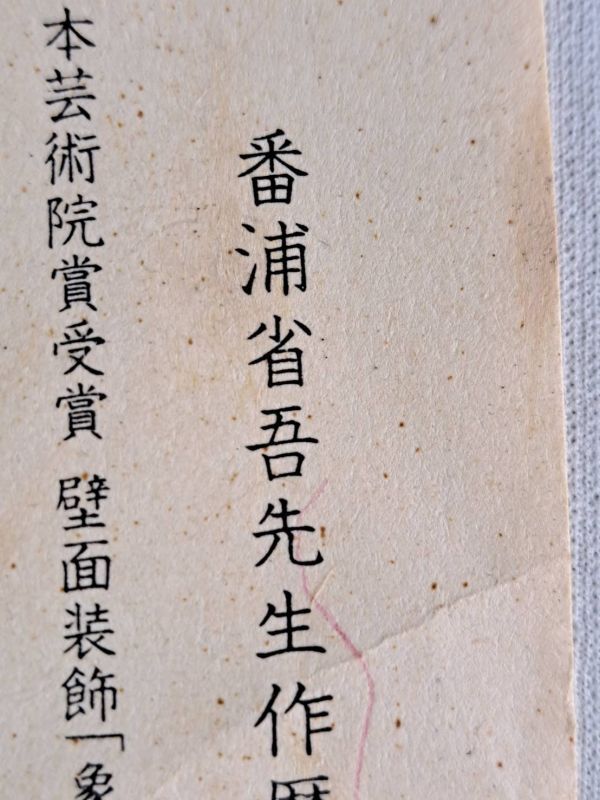 番浦省吾先生作歴
本芸術院賞受賞 壁面装飾「象